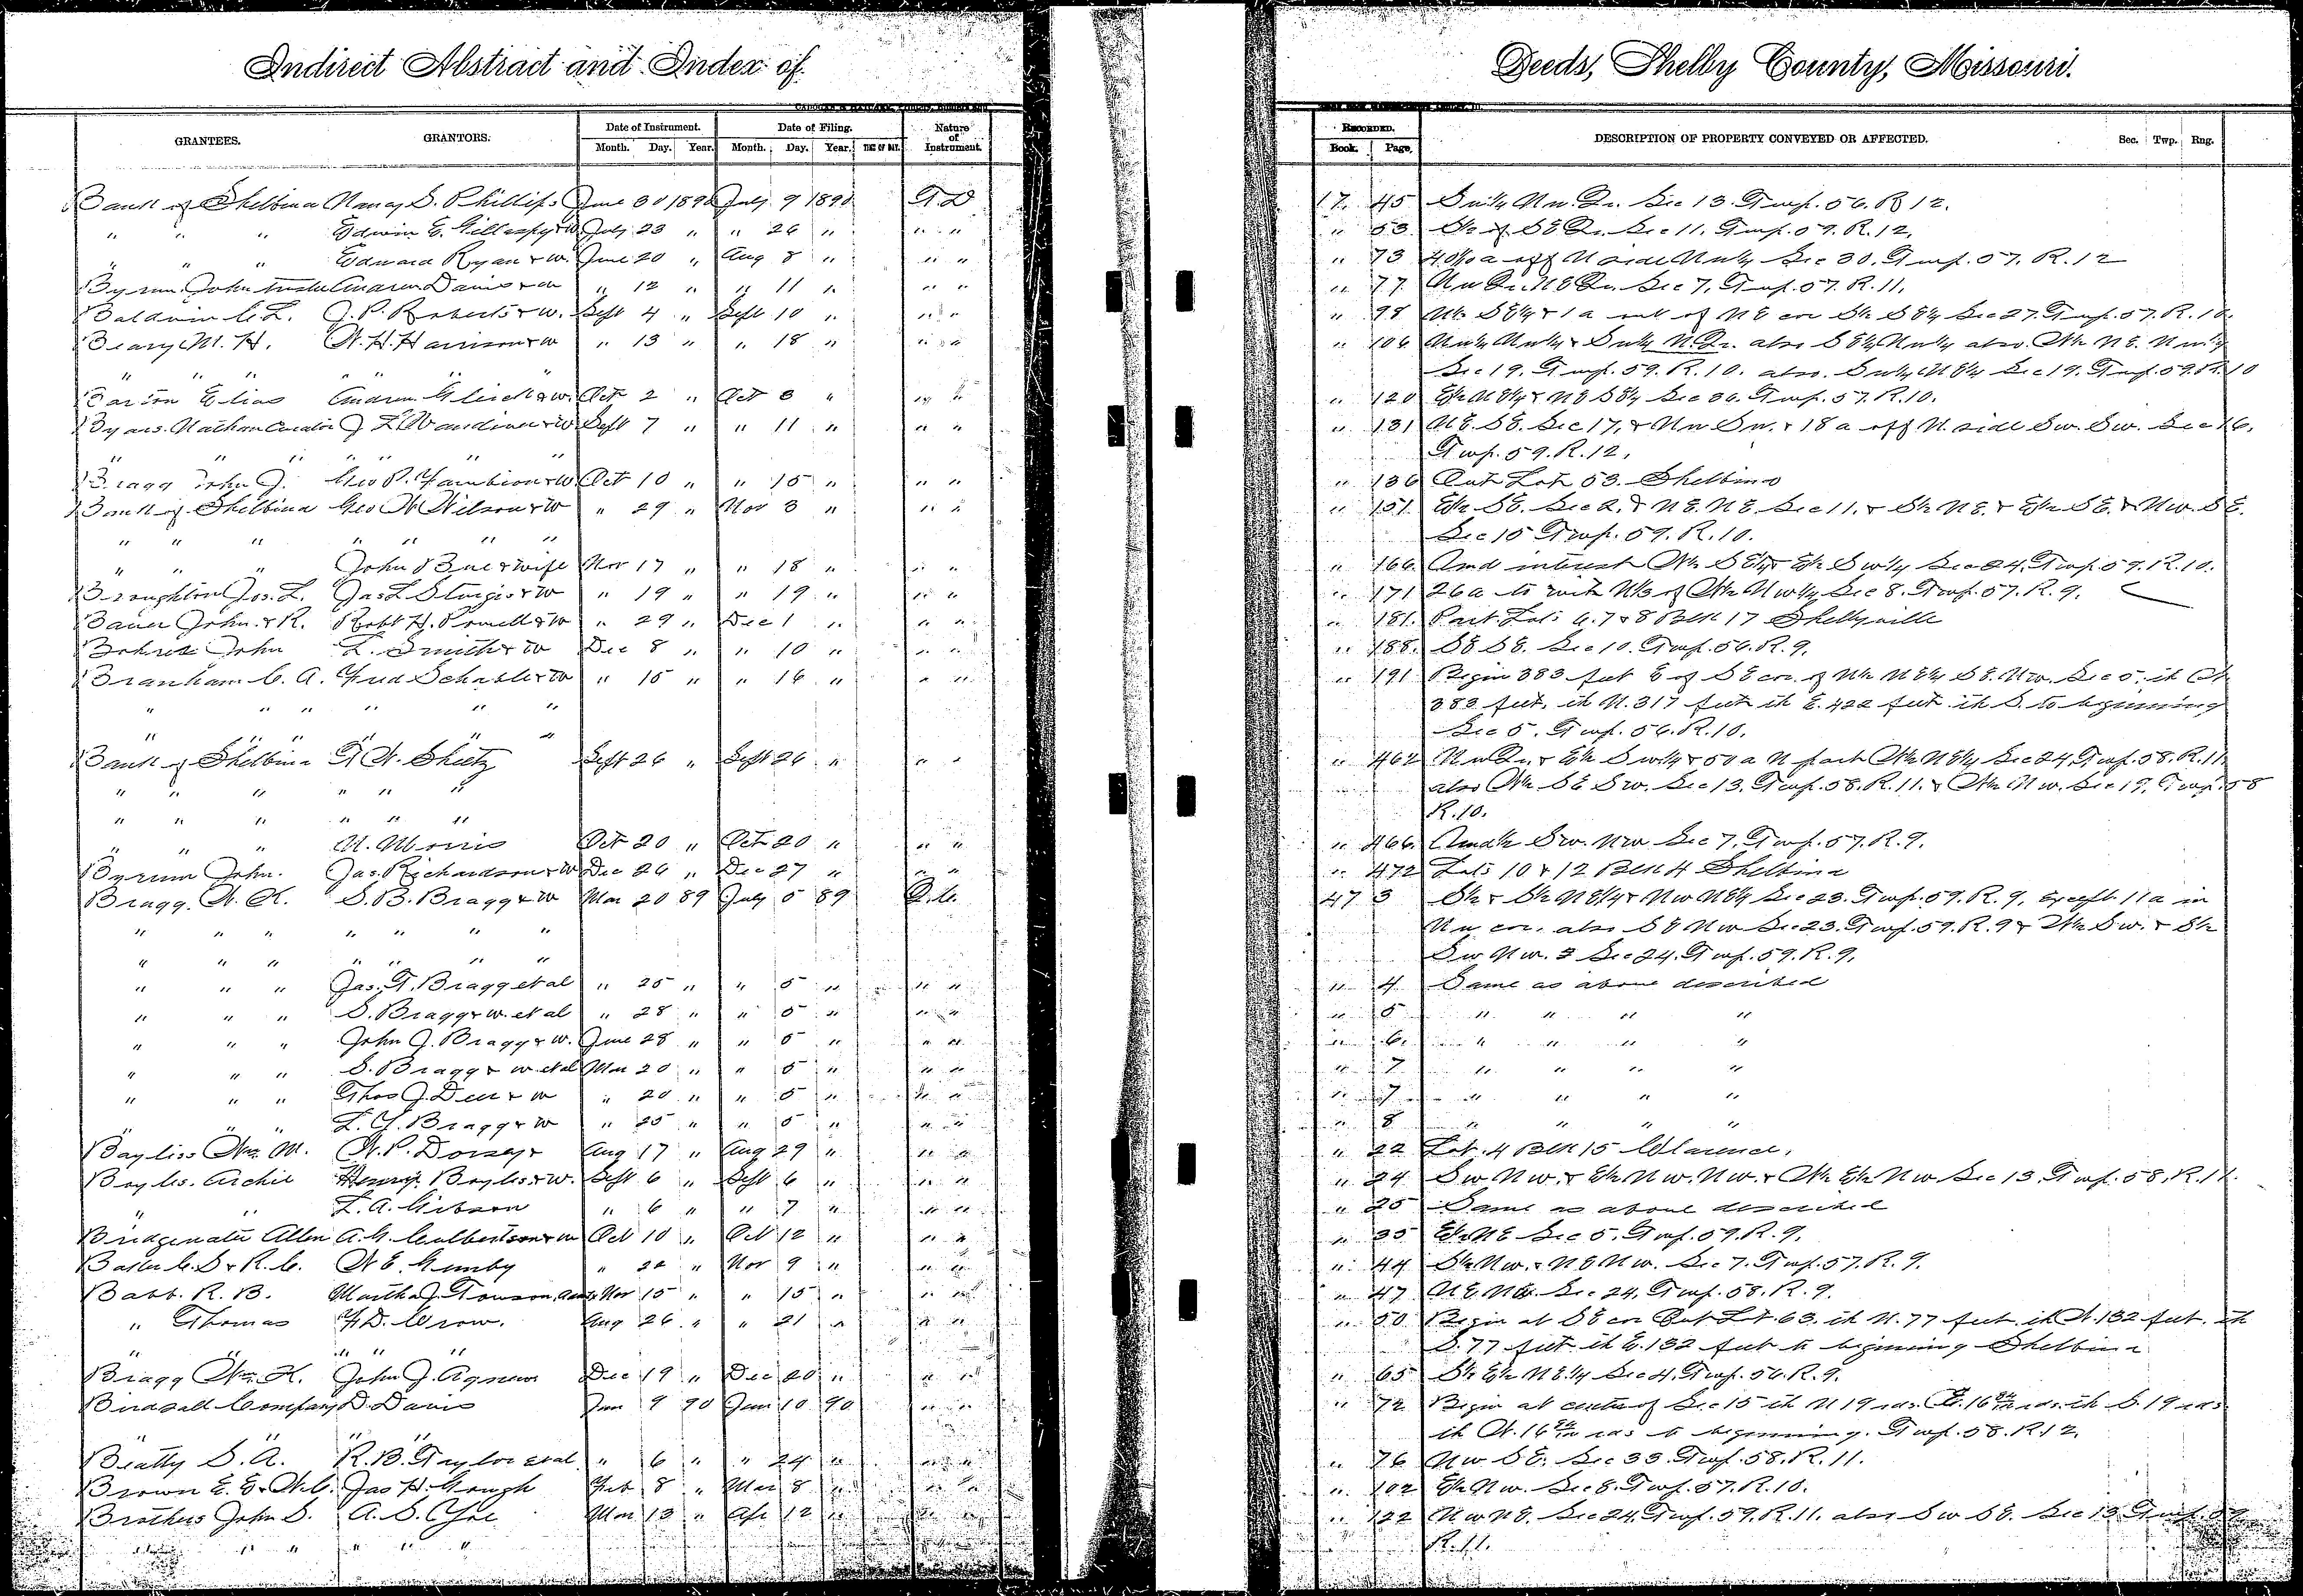 Indirect Abstract and Index of Deeds, Shelby County, Missouri.
GRANTEES. GRANTORS. Date of Instrument. Date of Filing. Nature of Instrument. RECORDED. DESCRIPTION OF PROPERTY CONVEYED OR AFFECTED. Sec. Twp. Rng.
Month. Day. Year. Month. Day. Year. TIME OF DAY. Book. Page.
Bank of Shelbina Nancy S. Phillips June 30 1890 July 9 1890 T.D 17 45 Sw¼ Nw. Qr. Sec 13. Twp. 56. R 12.
" " " Edwin E. Gillaspy & w. July 23 " " 26 " " " " 53 Sec 11. Twp. 57. R. 12.
" " " Edward Ryan & w. June 20 " Aug 8 " " " " 73 a off N side Nw¼ Sec 30. Twp. 57. R. 12
Byrum John trustee Davis & w " 12 " " 11 " " " " 77 Nw Qr. NE Qr. Sec 7, Twp. 57. R. 11.
Baldwin C. L. J. P. Roberts & w. Sept 4 " Sept 10 " " " " 98 N½ SE¼ & 1 a out of NE cor S½ SE¼ Sec 27. Twp. 57. R. 10.
M. H. W. H. Harrison & w " 13 " " 18 " " " " 106 Nw¼ Nw¼ & Sw¼ N. Qr. also SE¼ Nw¼ also W½ NE. Nw¼
" " " " " " " Sec 19. Twp. 59. R. 10. also Sw¼ NE¼ Sec 19. Twp. 59. R. 10
Barton Elias & w. Oct 2 " Oct 3 " " " " 120 E½ NE¼ & NE SE¼ Sec 36. Twp. 57. R. 10.
Byars Nathan Curator J. L. Vandiver & w Sept 7 " " 11 " " " " 131 NE. SE. Sec 17, & Nw Sw. & 18 a off N. side Sw. Sw. Sec 16,
" " " " " " " Twp. 59. R. 12,
Bragg John J. Geo P. & w. Oct 10 " " 15 " " " " 136 Out Lot 53. Shelbina
Bank of Shelbina Geo W Wilson & w " 29 " Nov 3 " " " " 151 E½ SE. Sec 2. & NE. NE. Sec 11. & S½ NE. & E½ SE. & Nw. SE.
" " " " " " " Sec 15 Twp. 59. R. 10.
" " " John & wife Nov 17 " " 18 " " " " 166 Und interest W½ SE¼ & E½ Sw¼ Sec 24. Twp. 59. R. 10.
Broughton Jos. L. Jas L Sturgis & w " 19 " " 19 " " " " 171 26 a to wit N⅓ of W½ Nw¼ Sec 8. Twp. 57. R. 9.
Bauer John & R. Robt H. Powell & w " 29 " Dec 1 " " " " 181. Part Lots 6. 7 & 8 Blk 17 Shelbyville
John L. Smith & w Dec 8 " " 10 " " " " 188. SE SE. Sec 10. Twp. 56. R. 9,
Branham C. A. Fred & w " 15 " " 16 " " " " 191 Begin 383 feet E of SE cor. of N½ NE¼ SE. Nw. Sec 5. th W
" " " " " " 383 feet, th N. 317 feet th E. 422 feet th S. to beginning
" " " " " " Sec 5. Twp. 56. R. 10.
Bank of Shelbina T. W. Sheetz Sept 26 " Sept 26 " " " " 462 Nw Qr. & E½ Sw¼ & 50 a N part W½ NE¼ Sec 24, Twp. 58. R. 11
" " " " " " also W½ SE Sw. Sec 13. Twp. 58. R. 11. & W½ Nw. Sec 19, Twp. 58
" " " " " " R. 10.
" " " N. Morris Oct 20 " Oct 20 " " " " 466. Sw. Nw Sec 7, Twp. 57. R. 9.
Byrum John. Jas. Richardson & w Dec 26 " Dec 27 " " " " 472 Lots 10 & 12 Blk 4 Shelbina
Bragg. W. K. S. B. Bragg & w Mar 20 89 July 5 89 Q.C. 47 3 S½ & S½ NE¼ & Nw NE¼ Sec 23. Twp. 59. R. 9. except 11 a in
" " " " " " " Nw cor. also SE Nw Sec 23. Twp. 59. R. 9 & W½ Sw. & S½
" " " " " " " Sw Nw. Sec 24. Twp. 59. R. 9,
" " " Jas. T. Bragg et al " 25 " " 5 " " " " 4 Same as above described
" " " S. Bragg & w. et al " 28 " " 5 " " " " 5 " " " "
" " " John J. Bragg & w. June 28 " " 5 " " " " 6. " " " "
" " " S. Bragg & w et al Mar 20 " " 5 " " " " 7 " " " "
" " " Thos J. & w " 20 " " 5 " " " " 7 " " " "
" " " L. Y. Bragg & w " 25 " " 5 " " " " 8 " " " "
Bayliss Wm. M. W. P. Dorsey & Aug 17 " Aug 29 " " " " 22 Lot. 4 Blk 15 Clarence,
Boyles. Archie Henry Boyles & w. Sept 6 " Sept 6 " " " " 24 Sw Nw. & E½ Nw. Nw. & W½ E½ Nw Sec 13. Twp. 58. R. 11.
" " L. A. Gibson " 6 " " 7 " " " " 25 Same as above described
Bridgewater Allen A. G. Culbertson & w Oct 10 " Oct 12 " " " " 35 E½ NE Sec 5. Twp. 59. R. 9.
C. S & R. C. W. E. Gunby " 22 " Nov 9 " " " " 44 S½ Nw. & NE Nw. Sec 7. Twp. 57. R. 9.
Babb. R. B. Martha J. Towson Nov 15 " " 15 " " " " 47 Sec 24, Twp. 58. R. 9.
" Thomas F. D. Crow. Aug 26 " " 21 " " " " 50 Begin at SE cor Out Lot 63. th N. 77 feet. th W. 132 feet. th
" " " " " S. 77 feet th E. 132 feet to beginning Shelbina
Bragg Wm. K. John J. Agnew Dec 19 " Dec 20 " " " " 65 S½ E½ NE¼ Sec 4, Twp. 56. R. 9.
Birdsall Company D. Davis Jan 9 90 Jan 10 90 " " " 72 Begin at center of Sec 15 th N 19 rds. E. 16 rds. th S. 19 rds
" " " " th W. 16 rds to beginning. Twp. 58. R. 12.
Beatty S. A. R. B. Taylor et al " 6 " " 24 " " " " 76 Nw SE. Sec 33. Twp. 58. R. 11.
Brown E. E. & W. C. Jas H. Gough Feb 8 " Mar 8 " " " " 102 E½ Nw. Sec 8. Twp. 57. R. 10.
Brothers John S. A. S. Mar 13 " Apr 12 " " " " 122 Nw NE. Sec 24, Twp. 59. R. 11. also Sw SE. Sec 13 Twp. 59
" " " " " " R. 11.